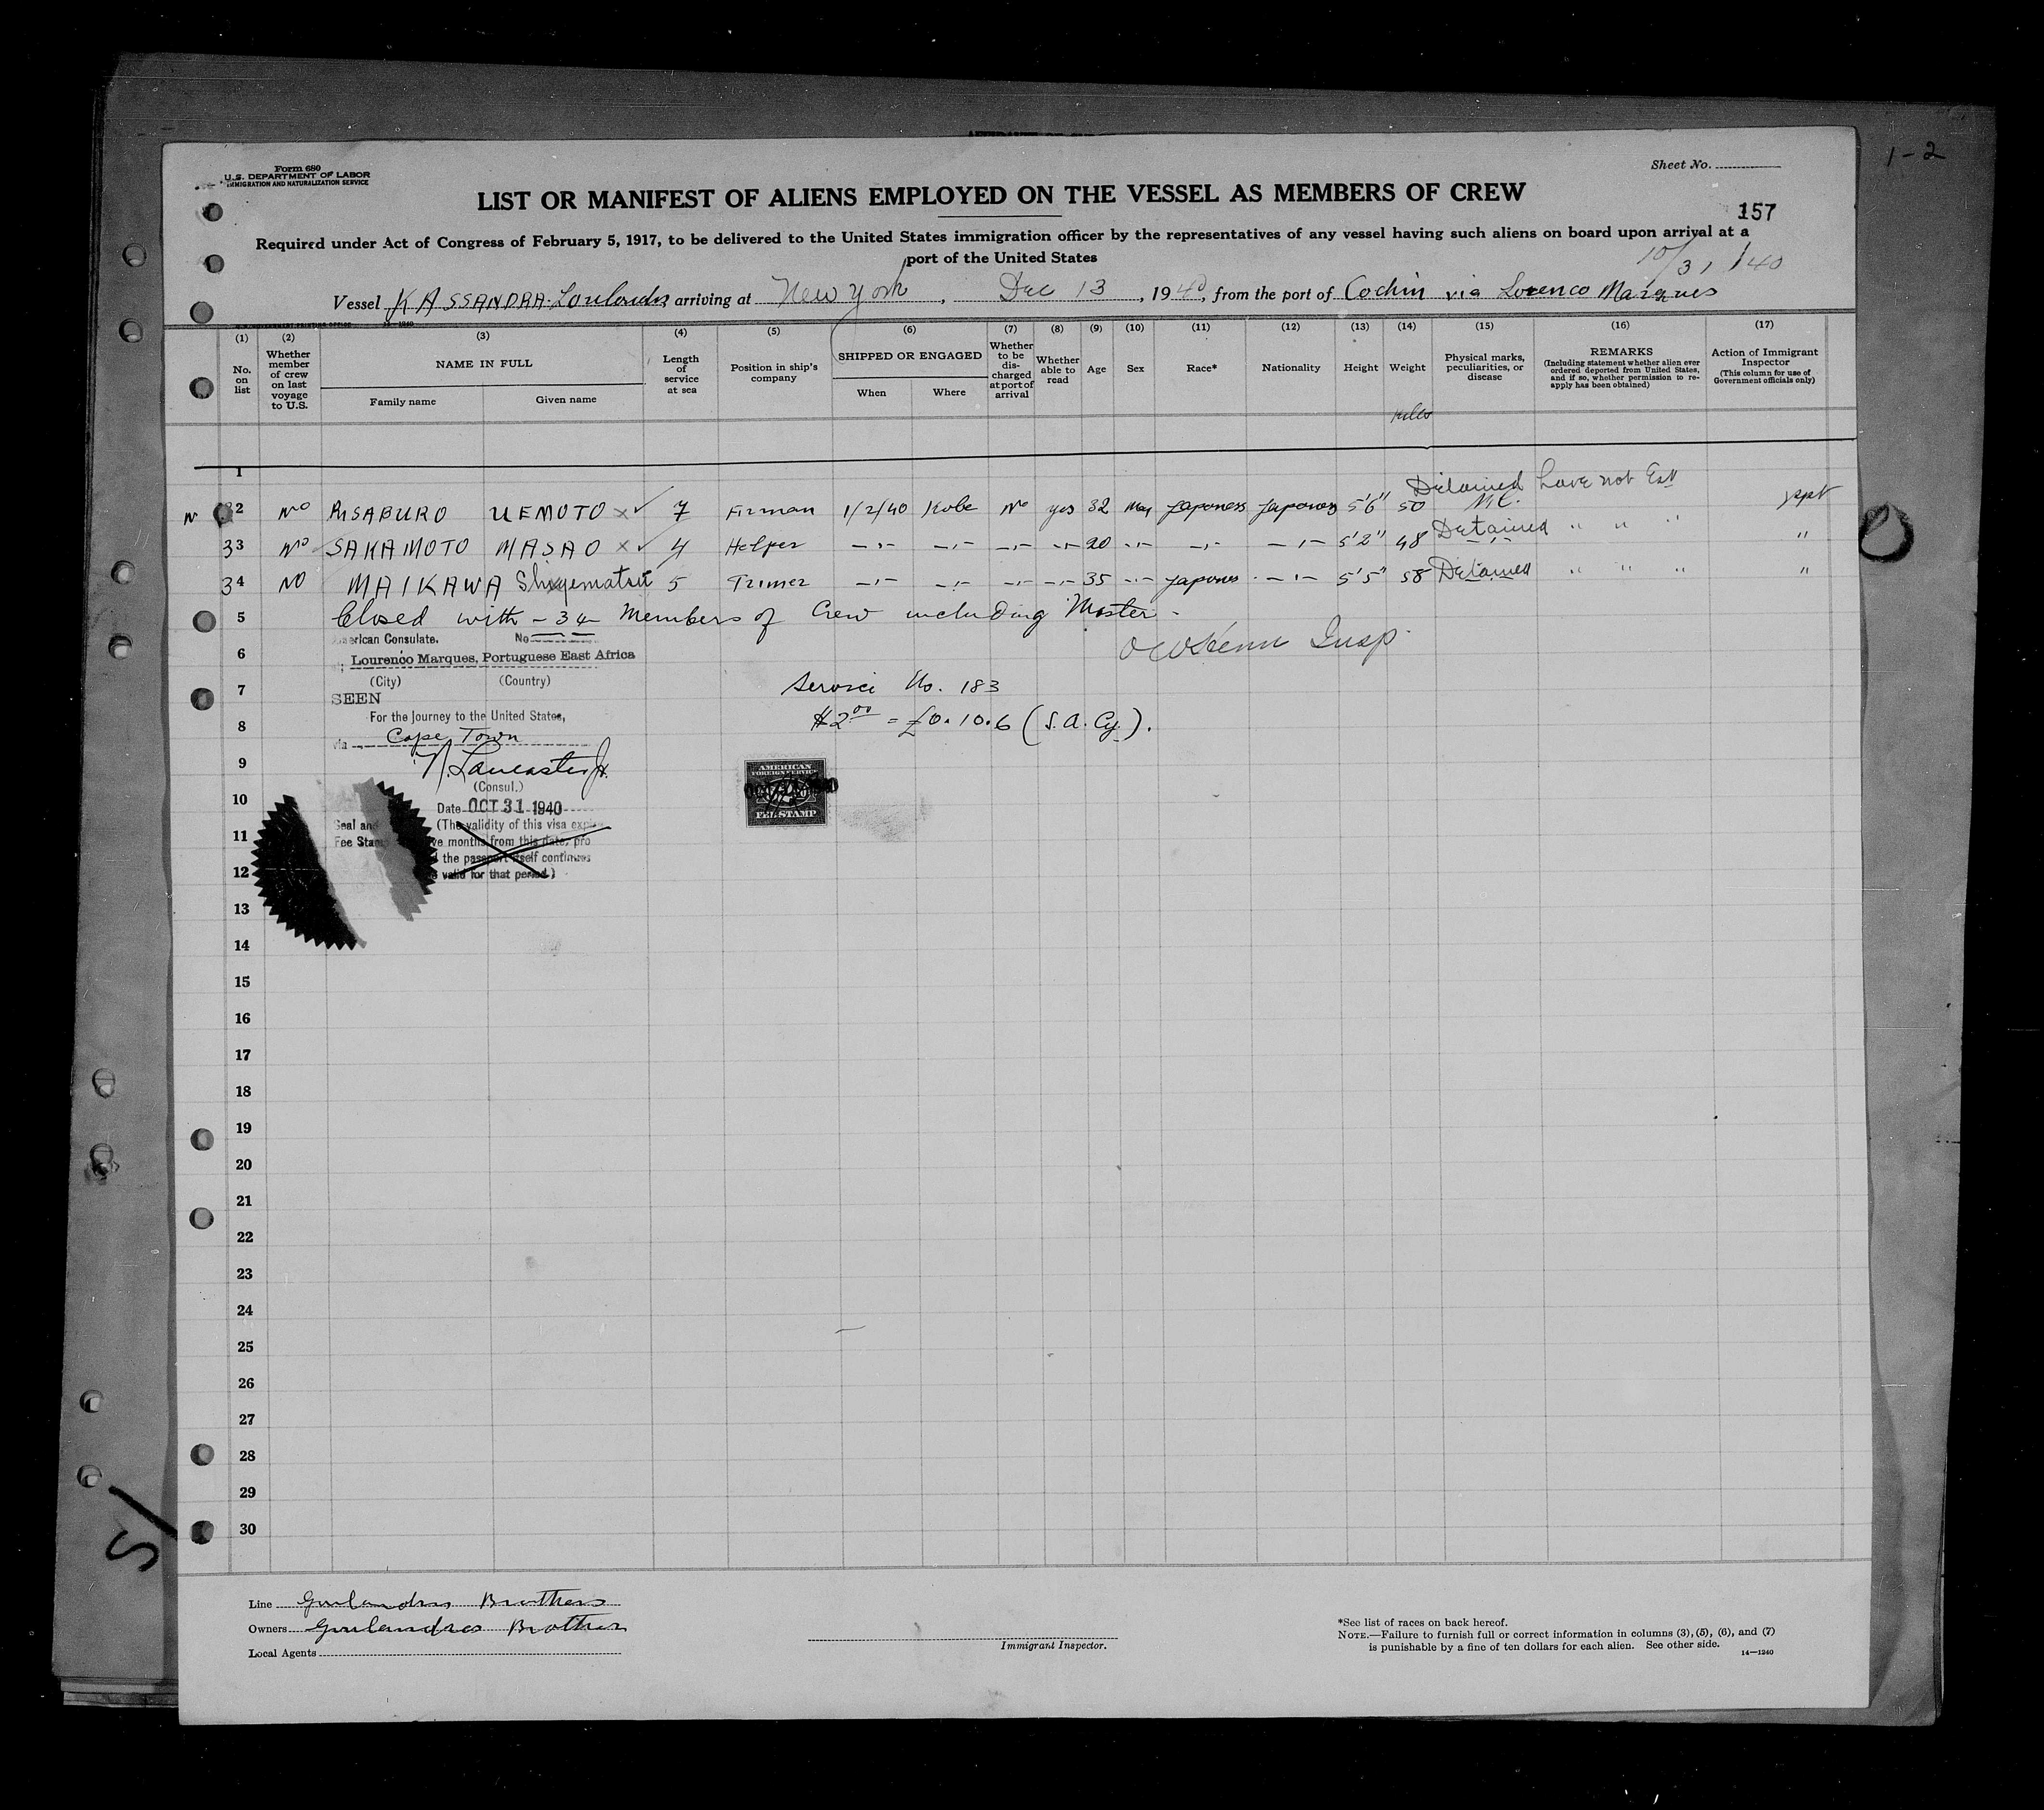 1-2
Form 680
U.S. DEPARTMENT OF LABOR
IMMIGRATION AND NATURALIZATION SERVICE
Sheet No.
LIST OR MANIFEST OF ALIENS EMPLOYED ON THE VESSEL AS MEMBERS OF CREW
157
Required under Act of Congress of February 5, 1917, to be delivered to the United States immigration officer by the representatives of any vessel having such aliens on board upon arrival at a
port of the United States
10/31/40
Vessel KASSANDRA-Louloudis arriving at New York, Dec 13, 1940, from the port of Cochin via Lorenco Marques
14-1240
(1) (2) (3) (4) (5) (6) (7) (8) (9) (10) (11) (12) (13) (14) (15) (16) (17)
No. on list
Whether member of crew on last voyage to U.S.
NAME IN FULL
Family name
Given name
Length of service at sea
Position in ship's company
SHIPPED OR ENGAGED
When
Where
Whether to be discharged at port of arrival
Whether able to read
Age
Sex
Race*
Nationality
Height
Weight
kilos
Physical marks, peculiarities, or disease
REMARKS
(Including statement whether alien ever ordered deported from United States, and if so, whether permission to reapply has been obtained)
Action of Immigrant Inspector
(This column for use of Government officials only)
1
Detained have not Est
32 No RISABURO UEMOTO x ✓ 7 Firman 1/2/40 Kobe No yes 32 Japoness Japones 5'6" 50 ppt
33 No SAKAMOTO MASAO x ✓ 4 Helper -"- -"- -"- -"- 20 -"- -"- -"- 5'2" 48 Detained " " " "
34 NO MAIKAWA Shigematsu 5 Trimer -"- -"- -"- -"- 35 -"- Japones -"- 5'5" 58 Detained " " " "
5 Closed with - 34 Members of Crew including Master -
American Consulate. No
6 Insp.
Lourenco Marques, Portuguese East Africa
(City) (Country)
7 Service No. 183
SEEN
For the Journey to the United States,
8 $2.00 = £0.10.6 (S.A. Cy.).
via Cape Town
9 Lancaster Jr.
(Consul.)
AMERICAN
FOREIGN SERVICE
FEE STAMP
10 Date OCT 31 1940
Seal and (The validity of this visa
11
Fee Stamp months from this date, pro
the passport itself continues
12 valid for that period.)
13
14
15
16
17
18
19
20
21
22
23
24
25
26
27
28
29
30
S/
Line Goulandris Brothers
Owners Goulandris Brothers
Local Agents
Immigrant Inspector.
*See list of races on back hereof.
NOTE.—Failure to furnish full or correct information in columns (3), (5), (6), and (7)
is punishable by a fine of ten dollars for each alien. See other side.
14—1240